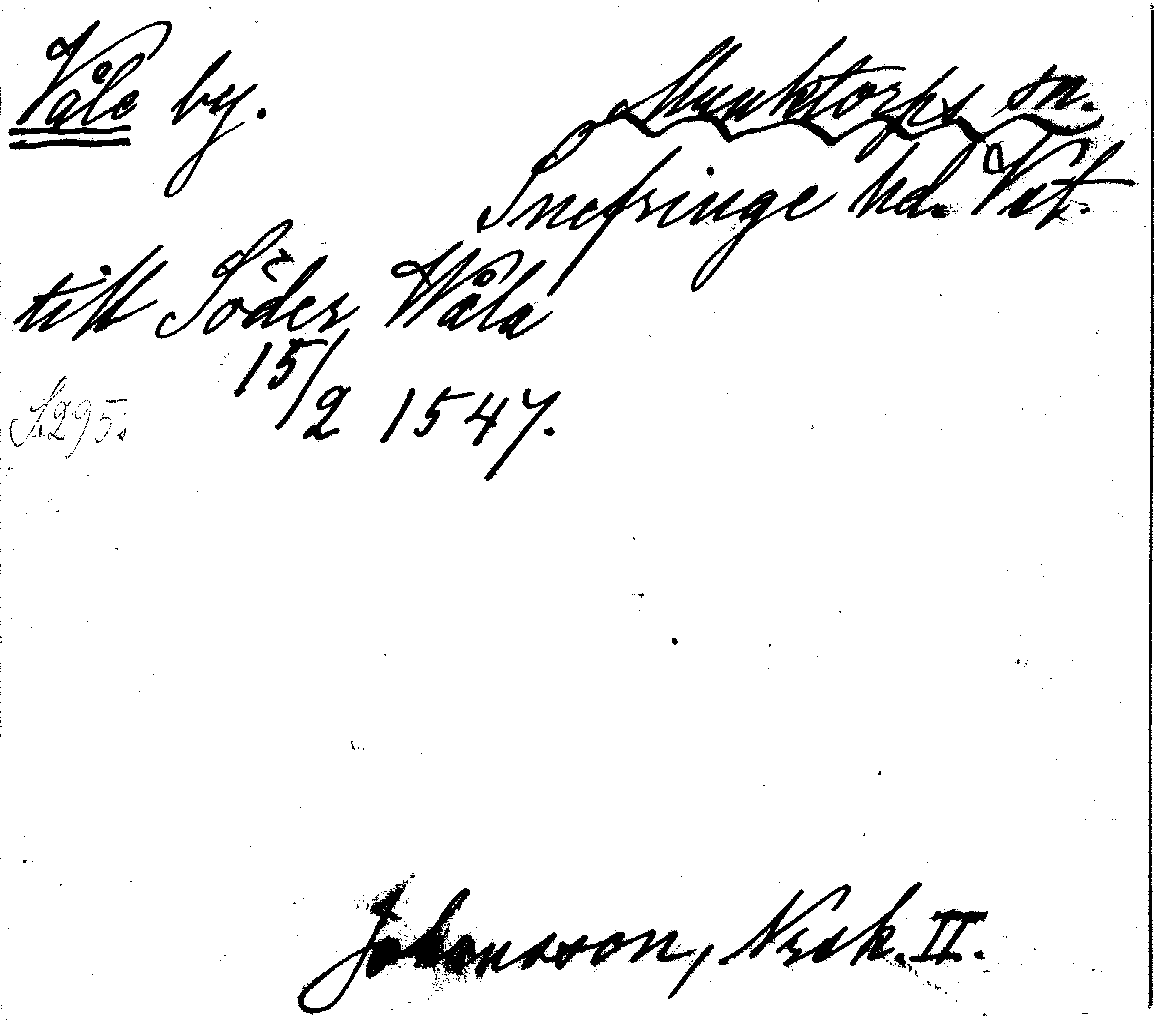 Våle by.
Munktorps sn.
Snefringe hd. Vst.
till Söder Wåla
15/2 1547.
S. 295.
Johansson, Nsk. II.